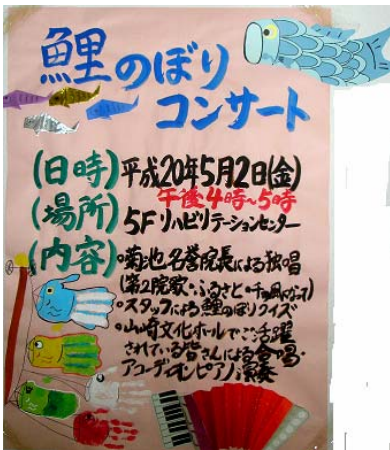 鯉のぼり
コンサート
(日時)平成20年5月2日(金)
午後4時~5時
(場所)5Fリハビリテーションセンター
(内容)
・菊池名誉院長による独唱
(第2院歌・ふるさと・千の風になって)
・スタッフによる鯉のぼりクイズ
・山崎文化ホールでご活躍
されている皆さんによる合唱・
アコーディオンピアノ演奏